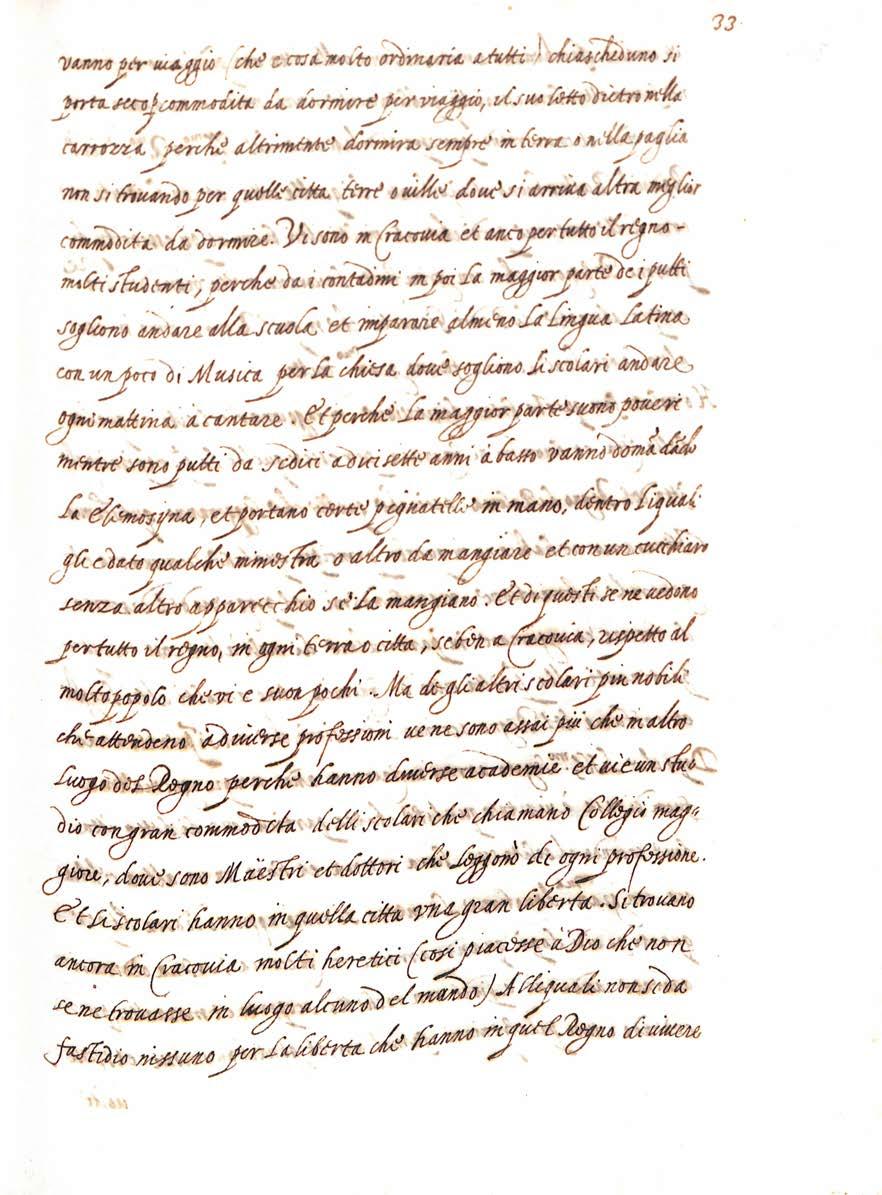 33
vanno per viaggio (che e cosa molto ordinaria a tutti) chiascheduno si
porta seco commodita da dormire per viaggio, il suo letto dietro nella
carrozza perche altrimente dormira sempre in terra o nella paglia
non si trovando per quelle citta terre o ville dove si arriva altra miglior
commodita da dormire. Vi sono in Cracovia et anco per tutto il regno -
molti studenti, perche da i contadini in poi la maggior parte de i putti
sogliono andare alla scuola et imparare almeno La Lingua Latina
con un poco di Musica per la chiesa dove sogliono li scolari andare
ogni mattina a cantare. Et perche la maggior parte suono poveri
mentre sono putti da sedici a dicisette anni a basso vanno
La Elemosyna, et portano certe pignatelle in mano, dentro li quali
gli e dato qualche minestra o altro da mangiare et con un cucchiaro
senza altro apparecchio se la mangiano. Et di questi se ne vedono
per tutto il regno, in ogni terra o citta, se ben a Cracovia, rispetto al
molto popolo che vi e suon pochi. Ma de gli altri scolari piu nobili
che attendeno a diverse professioni ve ne sono assai più che in altro
Luogo del Regno perche hanno diverse academie et vi e un stu
dio con gran commodita delli scolari che chiamano Collegio mag=
giore, dove sono Maëstri et dottori che leggono di ogni professione.
Et li scolari hanno in quella citta una gran liberta. Si trovano
ancora in Cracovia molti heretici (cosi piacesse à Dio che non
se ne trovasse in luogo alcuno del mondo) Alli quali non se da
fastidio nissuno per la liberta che hanno in quel Regno di vivere